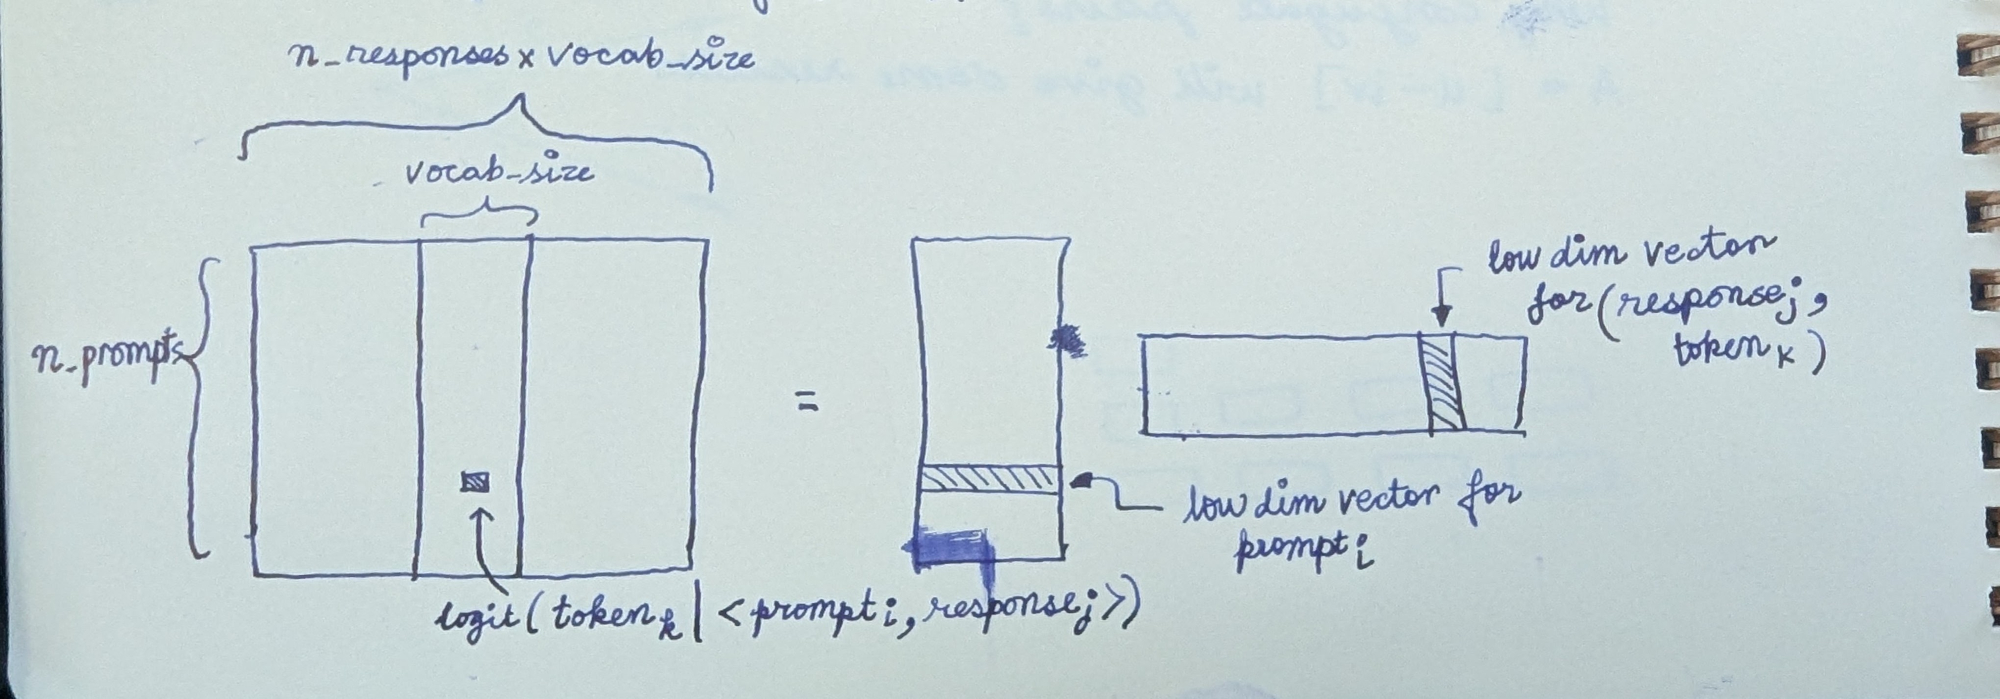 n_responses x vocab_size
vocab_size
n_prompts
=
low dim vector
for (response j,
token k)
low dim vector for
prompt i
logit ( token k | < prompt i, response j >)